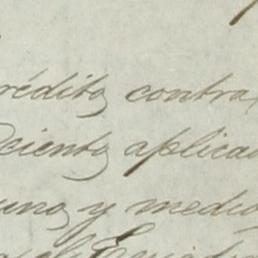 rédito contra
ciento aplica
uno, y medio